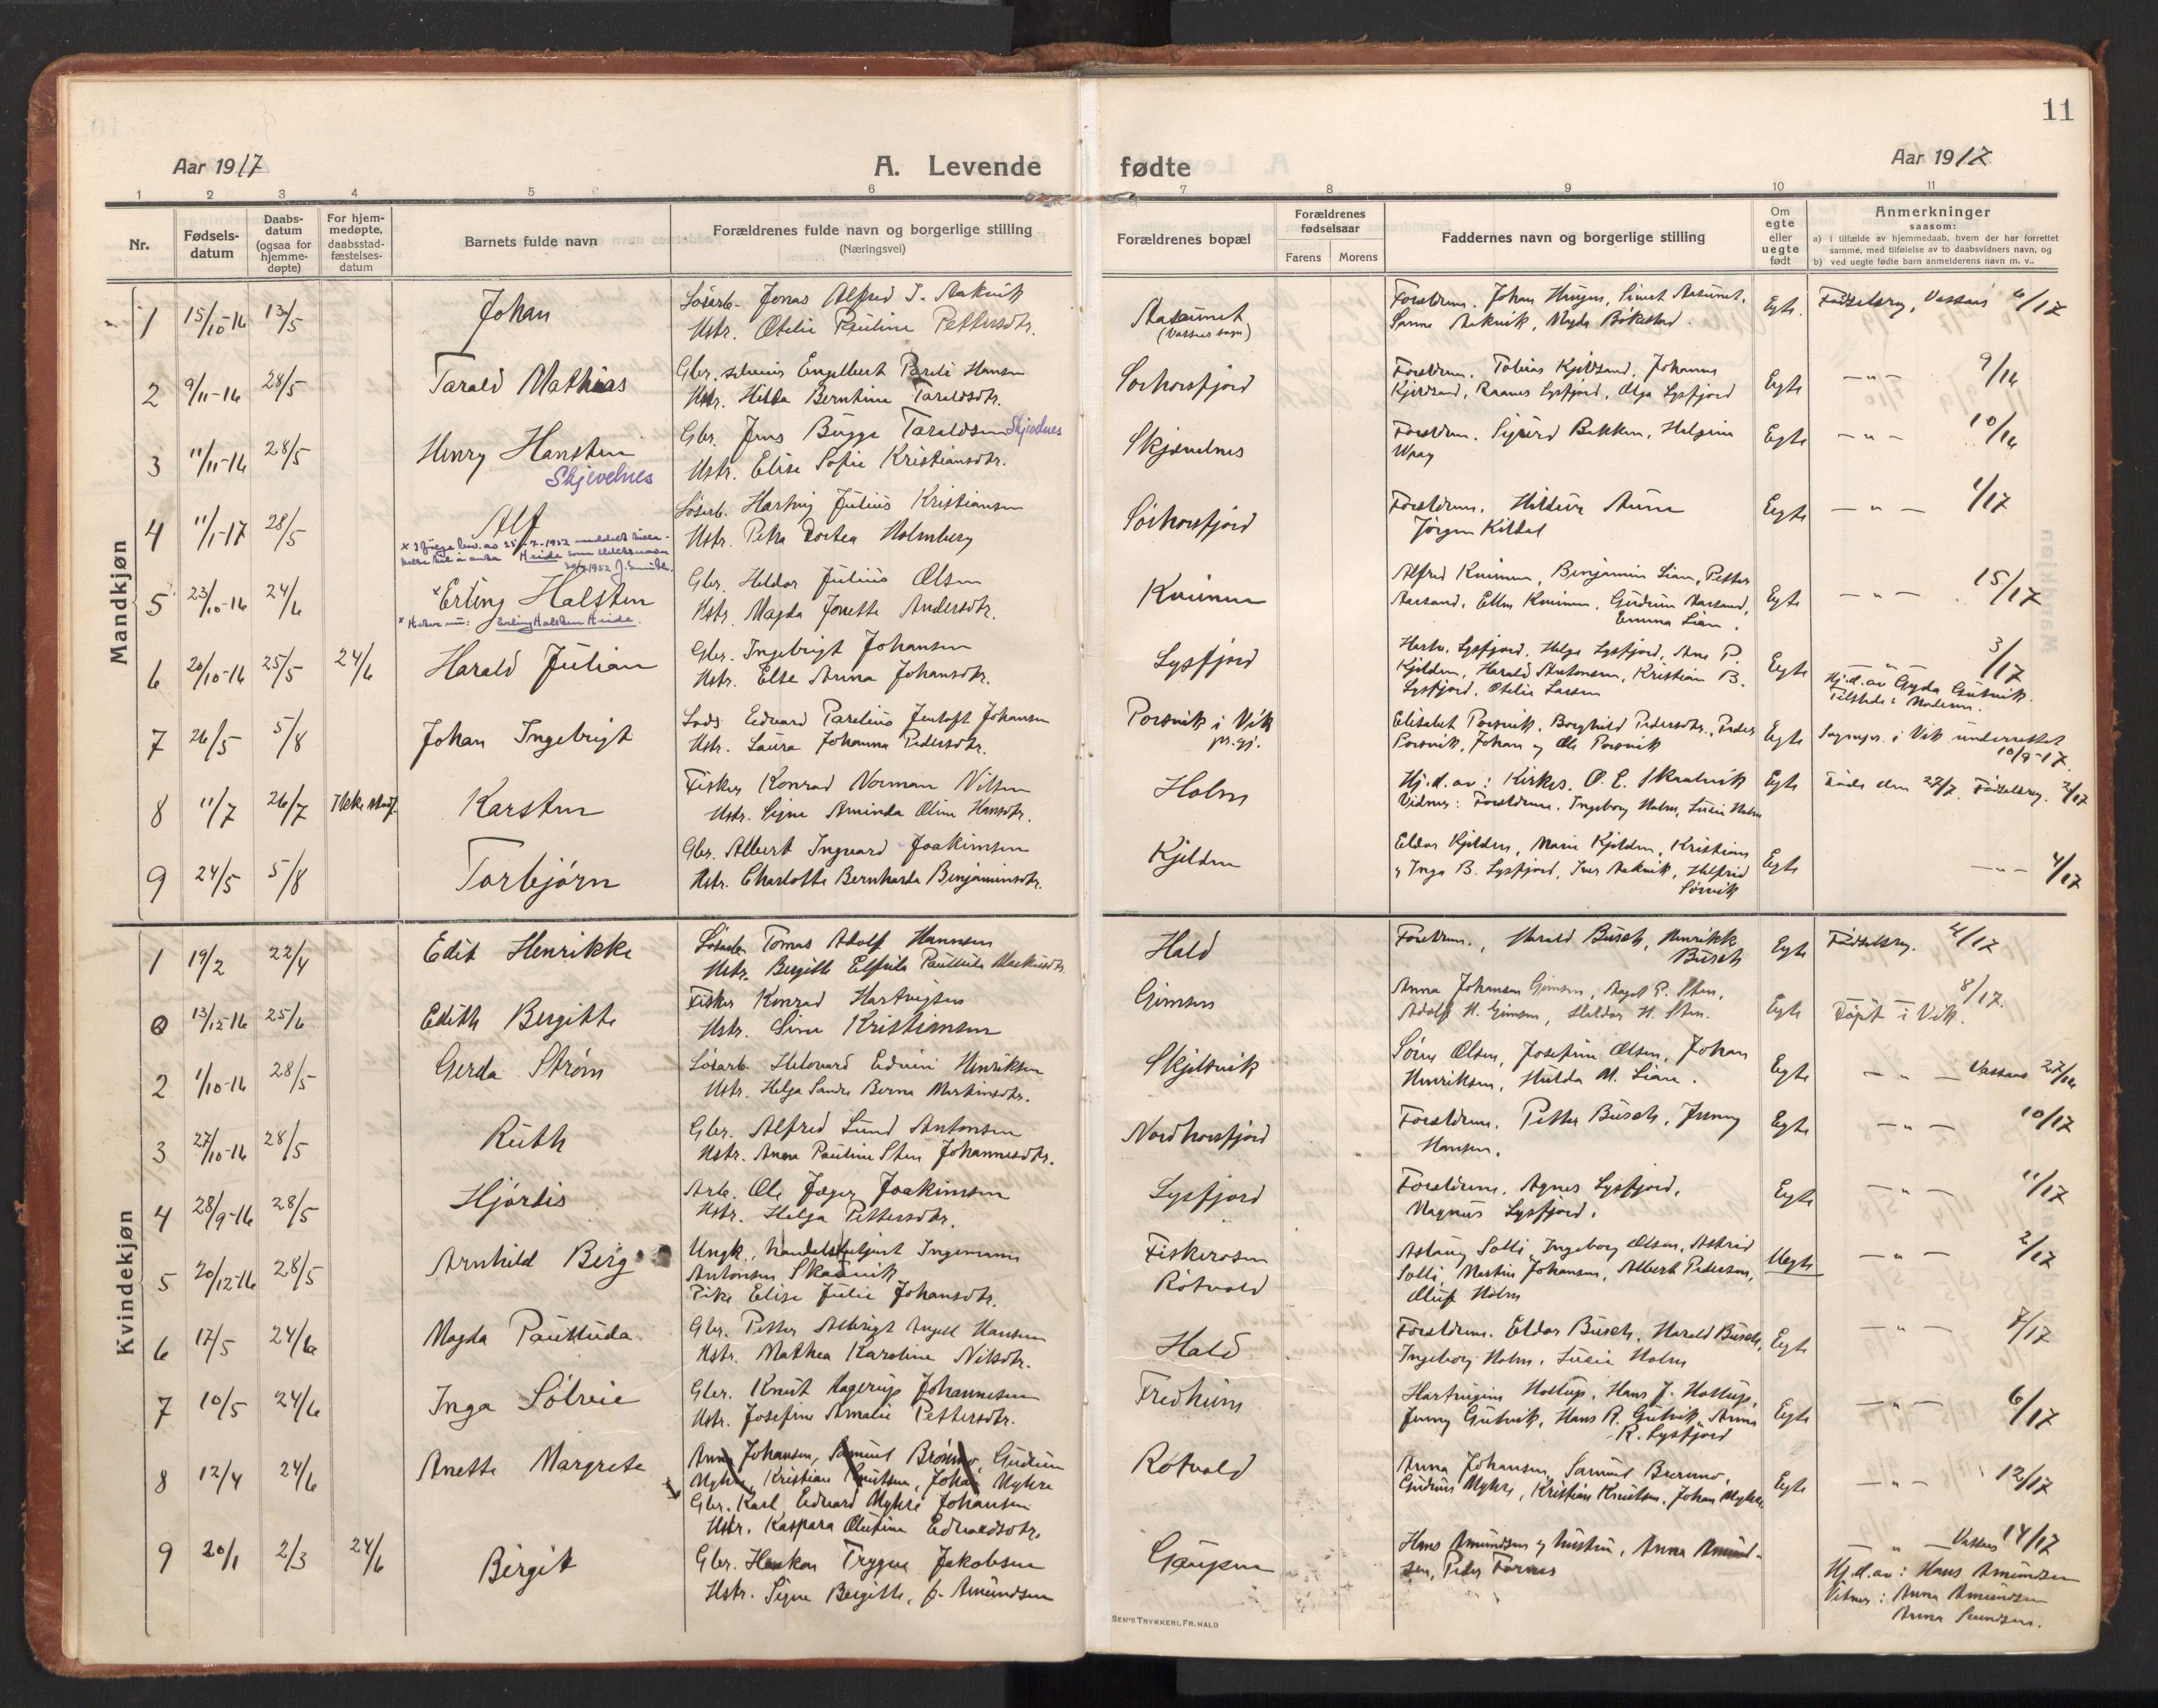 11
Aar 1917
A. Levende
fødte
Aar 1917
1 2 3 4 5 6 7 8 9 10 11
Nr.
Fødsels-
datum
Daabs-
datum
(ogsaa for
hjemme-
døpte)
For hjem-
medøpte,
daabsstad-
fæstelses-
datum
Barnets fulde navn
Forældrenes fulde navn og borgerlige stilling
(Næringsvei)
Forældrenes bopæl
Forældrenes
fødselsaar
Farens Morens
Faddernes navn og borgerlige stilling
Om
egte
eller
uegte
født
Anmerkninger
saasom:
a) i tilfælde av hjemmedaab, hvem der har forrettet
samme, med tilføielse av to daabsvidners navn, og
b) ved uegte fødte barn anmelderens navn m. v..
Mandkjøn
1 15/10-16 13/5 Johan
Løsarb. Jonas Alfred J. Aakvik
Hstr. Otelie Pauline Pettersdtr.
Aasunet
(Vassaas sogn)
Forældrene. Johan
Sanna Aakvik, Magda Bökestad.
Egte. Fødselsreg. Vassaas 6/17
2 9/11-16 28/5 Tarald Mathias
Gbr. Engelbert Pareli Hansen
Hstr. Hilda Berntine Taraldsdtr.
Sørhorsfjord
Forældrene. Tobias Kjeldsand, Johanna
Kjeldsand, Ragnar Lysfjord, Olga Lysfjord
Egte — " — 9/16
3 11/11-16 28/5 Henry Hansten
Skjevelnes
Gbr. Jens Bugge Taraldsen Skjevelnes
Hstr. Elise Sofie Kristiansdtr.
Skjevelnes
Forældrene. Sigurd Bakken, Helgine
Waag
Egte — " — 10/16
4 11/1-17 28/5 Alf
x Ifølge bev. av 25-7-1952 meddelt tilla-
telse til å anta Heide som slektsnavn
J. Smith.
Løsarb. Hartvig Julius Kristiansen
Hstr. Petra Dortea Holmberg
Sørhorsfjord
Forældrene. Hildur Aune
Jørgen Kildal
Egte — " — 1/17
5 23/10-16 24/6 x Erling Halsten
x Heter nu: Erling Halsten Heide.
Gbr. Heldor Julius Olsen
Hstr. Magda Jonette Andersdtr.
Kvinnen
Alfred Kvinnen, Benjamin Lian, Petter
Aarsand, Ellen Kvinnen, Gudrun Aarsand,
Emma Lian.
Egte — " — 15/17
6 20/10-16 25/5 24/6 Harald Julian
Gbr. Ingebrigt Johansen
Hstr. Else Anna Johansdtr.
Lysfjord
Lysfjord, Helga Lysfjord, Ane P.
Kjelden, Harald Antonsen, Kristian B.
Lysfjord, Otelie Larsen
Egte — " — 3/17
Hj.d. av Gyda Gutvik.
Tilstede: Moderen.
7 26/5 5/8 Johan Ingebrigt
Lods. Edvard Parelius Jentoft Johansen
Hstr. Laura Johanna Pedersdtr.
Porsvik i Vik
pr.gj.
Elisabet Porsvik, Borghild Pedersdtr., Peder
Porsvik, Johan og Ole Porsvik
Egte Sognepr. i Vik underrettet
10/9-17
8 11/7 26/7 Ikke stadf. Karsten
Fisker Konrad Norman Nilsen
Hstr. Signe Aminda Oline Hansdtr.
Holm
Hj.d. av: Kirkes. O. E. Skralvik
Vidner: Forældrene. Ingeborg Holm, Lucie Holm
Egte Døde den 27/7. Fødselsreg. 2/17
9 24/5 5/8 Torbjørn
Gbr. Albert Ingvard Joakimsen
Hstr. Charlotte Bernharda Benjaminsdtr.
Kjelden
Eldar Kjelden, Marie Kjelden, Kristians
og Inga B. Lysfjord, Iver Aakvik, Helfrid
Sørvik
Egte — " — 4/17
Kvindekjøn
1 19/2 22/4 Edit Henrikke
Løsarb. Tomas Adolf Hannsen
Hstr. Bergitte Elfrida Paulline Markusdtr.
Hald
Forældrene., Harald Busch, Henrikk
Busch
Egte Fødselsreg. 4/17
13/12-16 25/6 Edith Bergitte
Fisker Konrad Hartvigsen
Hstr. Lina Kristiansen
Gimsen
Anna Johansen Gimsen, Aagot P. Sten,
Adolf H. Gimsen, Haldor H. Sten.
Egte — " — 8/17.
Døpt i Vik.
2 1/10-16 28/5 Gerda Strøm
Løsarb. Hildevard Edvin Henriksen
Hstr. Helga Sandra Berna Martinsdtr.
Skjelsvik
Sørine Olsen, Josefine Olsen, Johan
Henriksen, Hulda M. Lian.
Egte — " — Vassaas 27/16
3 27/10-16 28/5 Ruth
Gbr. Alfred Lund Antonsen
Hstr. Anna Pauline Sten Johannesdtr.
Nordhorsfjord
Forældrene. Petter Busch, Jenny
Hansen.
Egte — " — 10/17
4 28/9-16 28/5 Hjørdis
Arb. Ole Jæger Joakimsen
Hstr. Helga Pettersdtr.
Lysfjord
Forældrene. Agnes Lysfjord,
Magnus Lysfjord.
Egte — " — 11/17
5 20/12-16 28/5 Arnhild Berg
Ungk. handelsbetjent Ingemann
Antonsen Skaavik
Pike Elise Julie Johansdtr.
Fiskerosen
Rotvold
Aslaug Solli, Ingeborg Olsen, Astrid
Solli, Martin Johansen, Albert Pedersen,
Oluf Holm
Uegte — " — 2/17
6 17/5 24/6 Magda Paulluda
Gbr. Petter Albrigt Angell Hansen
Hstr. Mathea Karoline Nilsdtr.
Hald
Forældrene. Eldar Busch, Harald Busch,
Ingeborg Holm, Lucie Holm
Egte — " — 7/17
7 10/5 24/6 Inga Solveie
Gbr. Knut Hagerup Johannesen
Hstr. Josefine Amalie Pettersdtr.
Fredheim
Hartvigine Hollup, Hans J. Hollup,
Jenny Gutvik, Hans R. Gutvik, Anna
R. Lysfjord
Egte — " — 6/17
8 12/4 24/6 Anette Margrete
Anna Johansen, Samuel Brønmo, Gudrun
Myhre, Kristian Knutsen, Johan Myhre
Gbr. Karl Edvard Myhre Johansen
Hstr. Kaspara Olufine Edvardsdtr.
Rotvold
Anna Johansen, Samuel Brønmo,
Gudrun Myhre, Kristian Knutsen, Johan Myhre
Egte — " — 12/17
9 20/1 2/3 24/6 Birgit
Gbr. Haakon Trygve Jakobsen
Hstr. Signe Bergitte, f. Amundsen
Gaupen
Hans Amundsen og hustru, Anna Amund-
sen, Peder Fornes
— " — Vassaas 14/17
Hj.d. av: Hans Amundsen
Vitner: Anna Amundsen
Anna
SEM'S TRYKKERI, FR.HALD